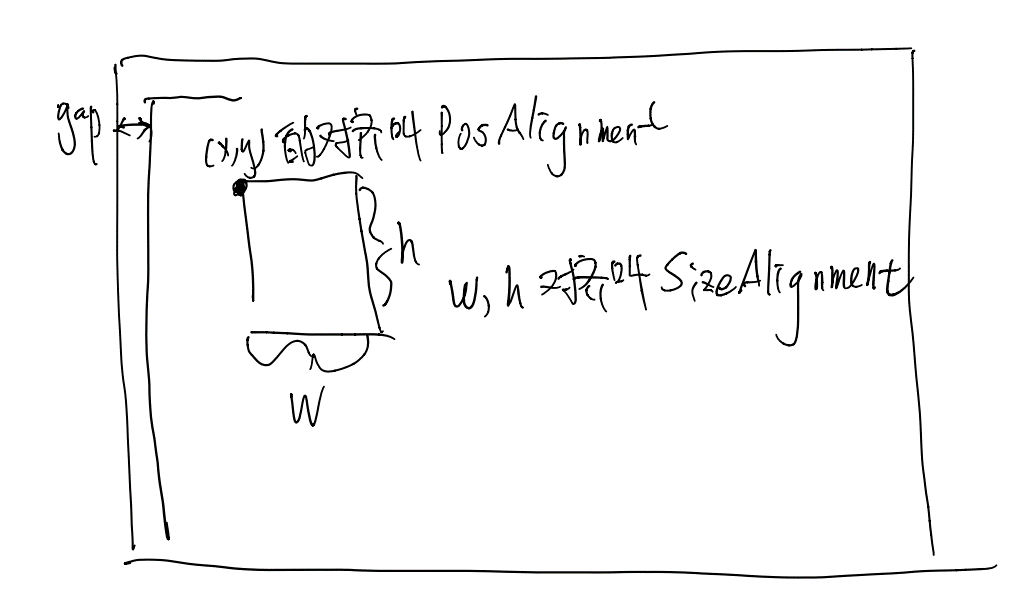 gap
(x,y)的对齐叫PosAlignment
h
w, h对齐叫SizeAlignment
W